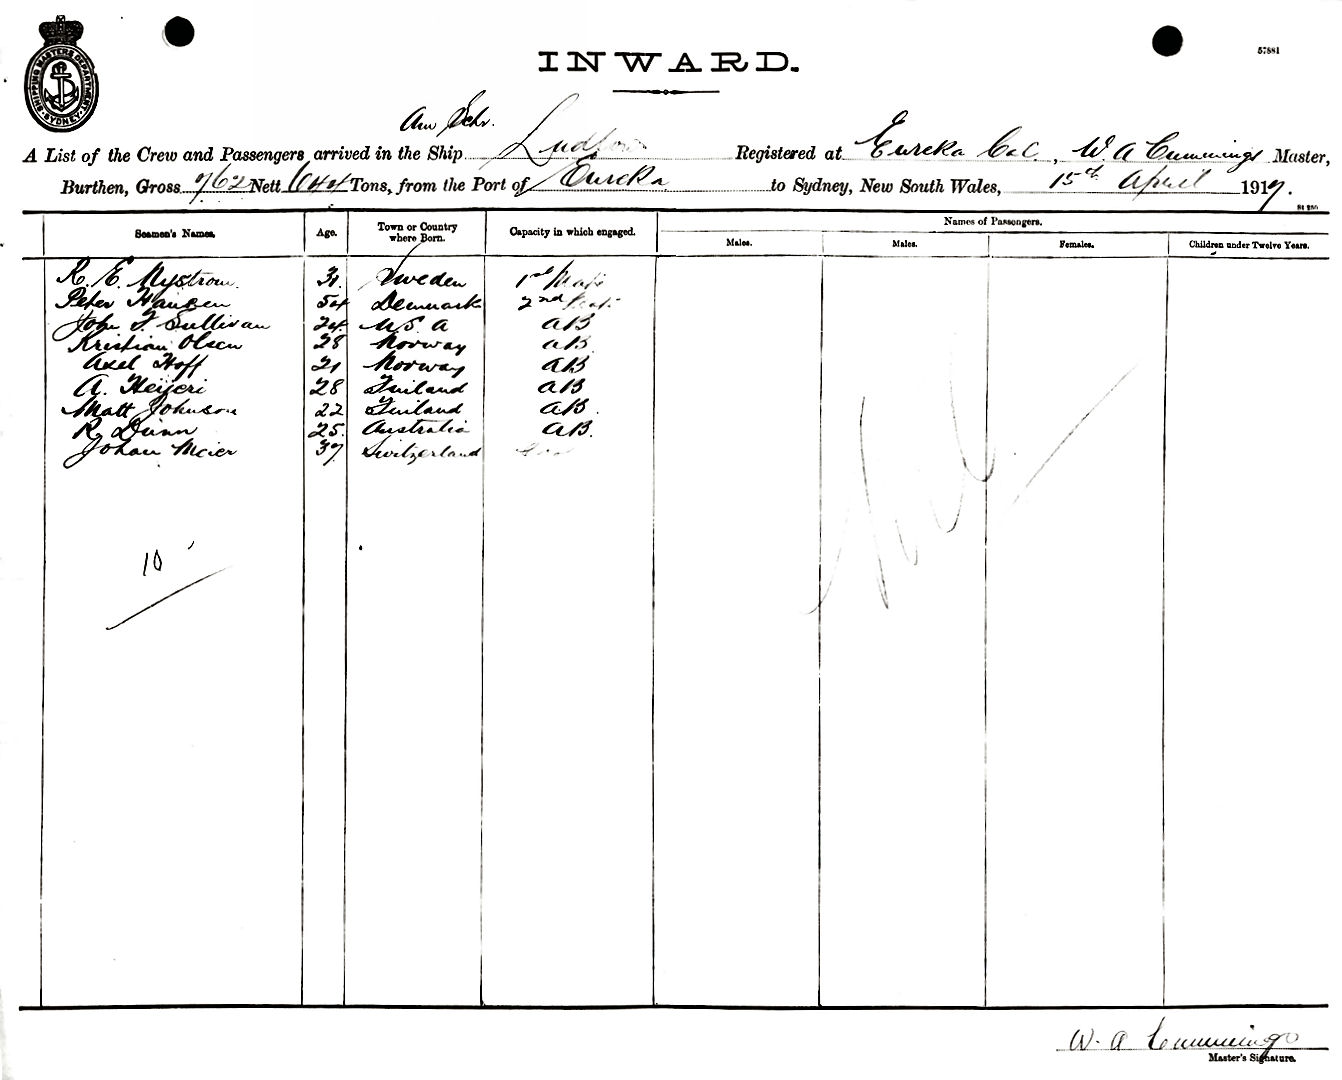 SHIPPING MASTERS DEPARTMENT
SYDNEY
57881
INWARD.
Am Schr.
A List of the Crew and Passengers arrived in the Ship Ludlow Registered at Eureka Cal, W. A Cummings Master,
Burthen, Gross 762 Nett 644 Tons, from the Port of Eureka to Sydney, New South Wales, 15th April 1917.
Seamen's Names. Age. Town or Country where Born. Capacity in which engaged. Names of Passengers.
Males. Males. Females. Children under Twelve Years.
R. E. Nystrom. 31. Sweden 1st Mate
Peter Hansen 54 Denmark 2nd Mate
John F. Sullivan 24 U S A AB
Kristian Olsen 28 Norway AB
Axel Hoff 21 Norway AB
A. Heijeri 28 Finland AB
Matt Johnson 22 Finland AB.
R. Dunn 25. Australia AB.
Johan Meier 37 Switzerland
Nil
10
W. A Cummings
Master's Signature.